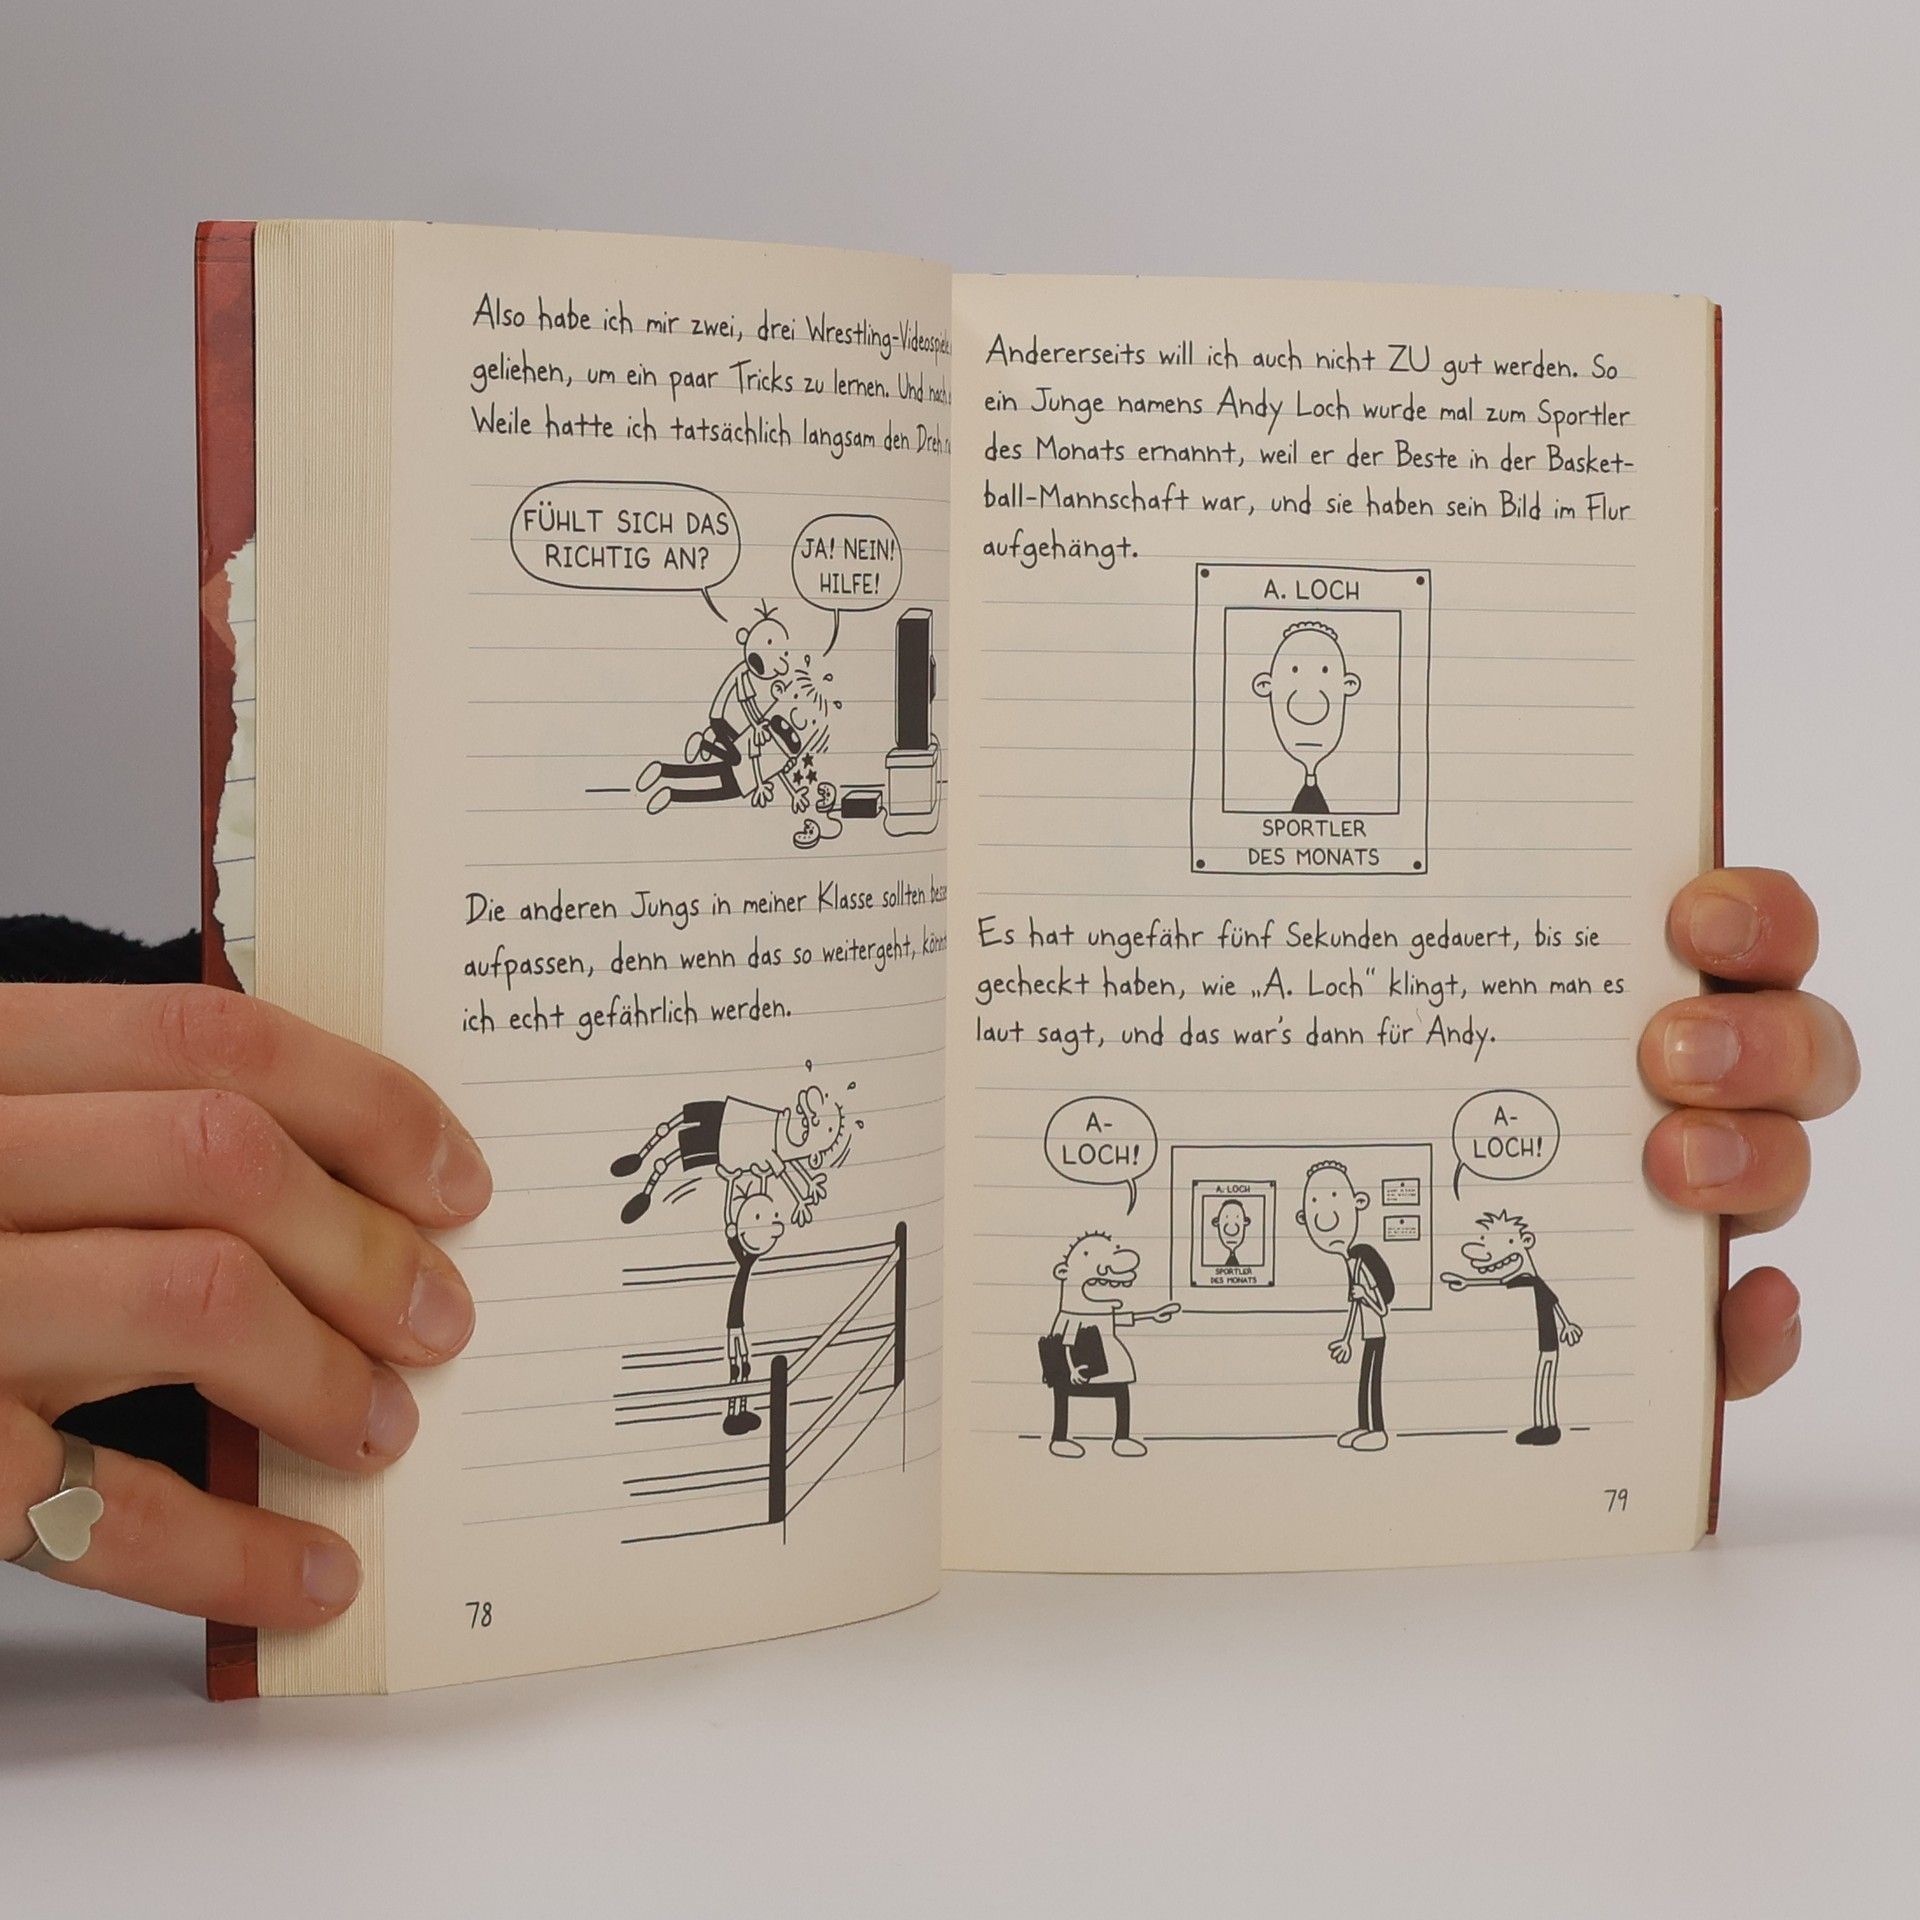 Also habe ich mir zwei, drei Wrestling-Videospiele
geliehen, um ein paar Tricks zu lernen. Und
Weile hatte ich tatsächlich langsam den
FÜHLT SICH DAS
RICHTIG AN?
JA! NEIN!
HILFE!
Die anderen Jungs in meiner Klasse sollten
aufpassen, denn wenn das so weitergeht,
ich echt gefährlich werden.
78
Andererseits will ich auch nicht ZU gut werden. So
ein Junge namens Andy Loch wurde mal zum Sportler
des Monats ernannt, weil er der Beste in der Basket-
ball-Mannschaft war, und sie haben sein Bild im Flur
aufgehängt.
A. LOCH
SPORTLER
DES MONATS
Es hat ungefähr fünf Sekunden gedauert, bis sie
gecheckt haben, wie „A. Loch" klingt, wenn man es
laut sagt, und das war's dann für Andy.
A-
LOCH!
A-
LOCH!
A. LOCH
SPORTLER
DES MONATS
79